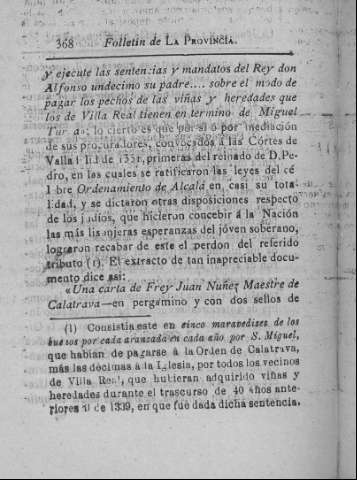 368 Folletin de LA PROVINCIA.
y ejecute las senten:ias y mandatos del Rey don
Alfonso undecimo su padre.... sobre el modo de
pagar los pechos de las viñas y heredades que
los de Villa Real tienen en termino de Miguel
lo cierto es que por sí ó por mediación
de sus procuradores, convocados á las Córtes de
de 1351, primeras del reinado de D. Pe-
dro, en las cuales se ratificaron las leyes del cé
l bre Ordenamiento de Alcalá en casi su tota
lidad, y se dictaron otras disposiciones respecto
de los judios, que hicieron concebir á la Nación
las más lisonjeras esperanzas del jóven soberano,
lograron recabar de este el perdon del referido
tributo (1). El extracto de tan inapreciable docu-
mento dice asi:
«Una carta de Frey Juan Nuñez Maestre de
Calatrava—en pergamino y con dos sellos de
(1) Consistia este en cinco maravedises de los
buenos por cada aranzada en cada año por S. Miguel,
que habian de pagarse á la Orden de Calatrava,
más las decimas á la Iglesia, por todos los vecinos
de Villa Real, que hubieran adquirido viñas y
heredades durante el trascurso de 40 años ante-
riores al de 1339, en que fué dada dicha sentencia.